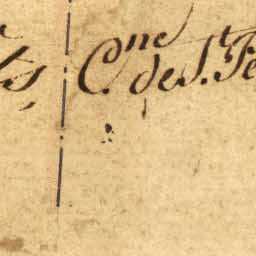 ts, C.ne de St. Fe